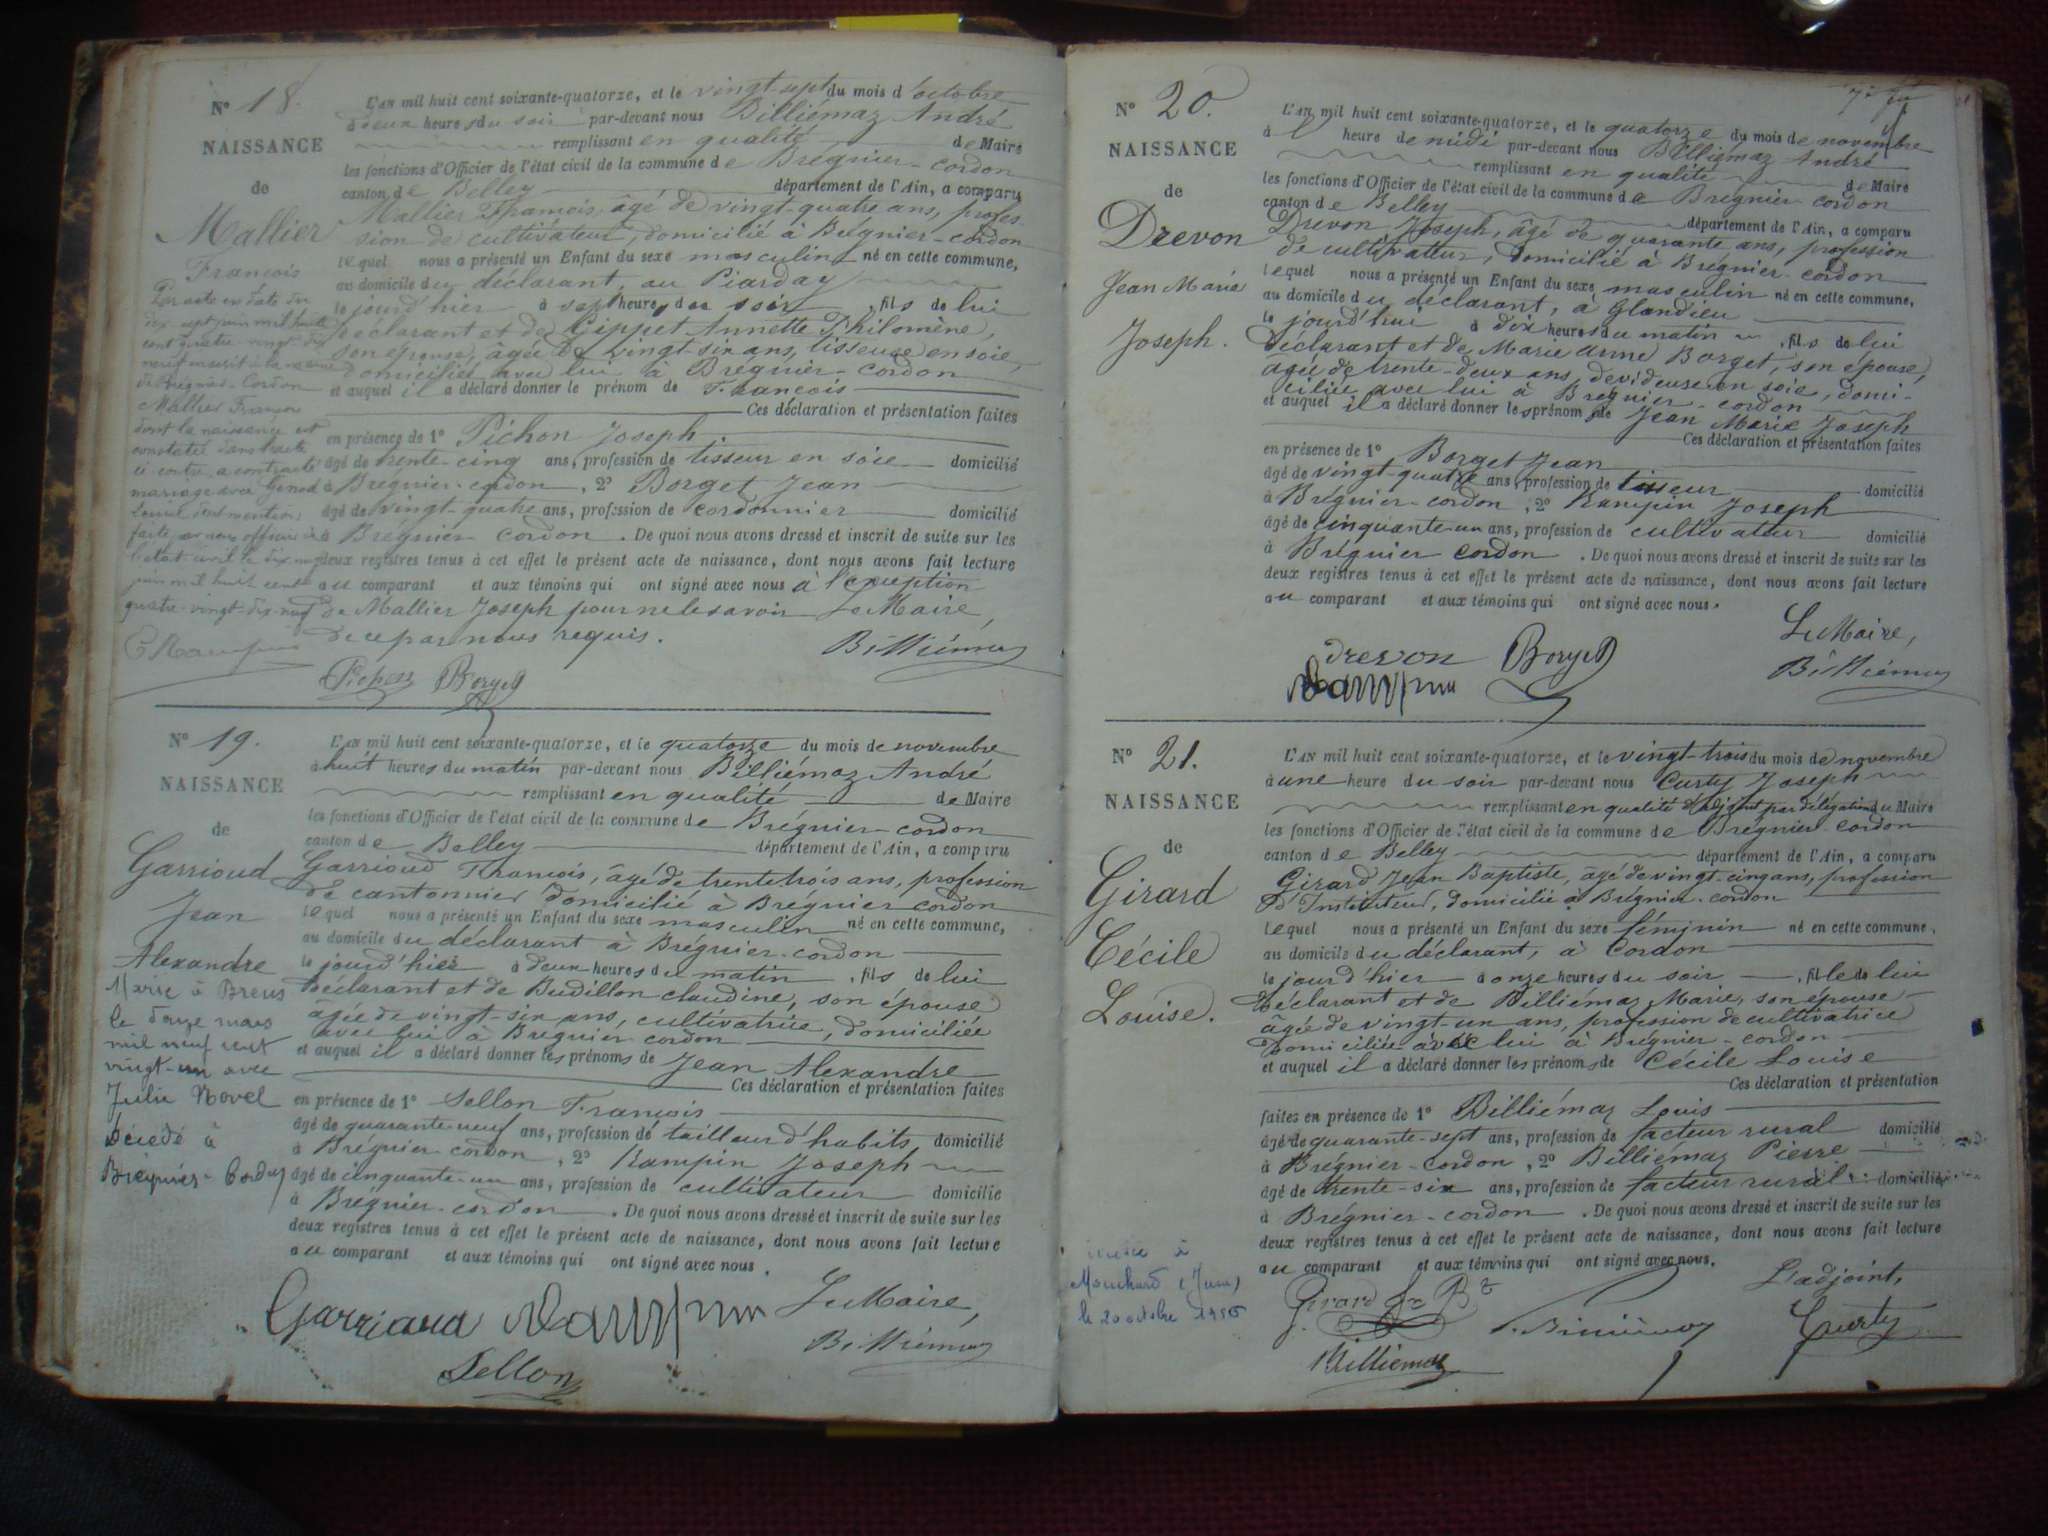 N° 18.
NAISSANCE
de
Mallier
François
Par acte en date du
dix sept juin mil huit
cent quatre vingt dix
neuf inscrit à la mairie
de Brégnier-Cordon
Mallier François
dont la naissance est
constatée dans l'acte
ci contre, a contracté
mariage avec
faite par nous officier de
l'état civil le dix neuf
juin mil huit cent
quatre-vingt-dix-neuf
L'AN mil huit cent soixante-quatorze, et le vingt-sept du mois d'octobre
à deux heures du soir par-devant nous Billiémaz André
remplissant en qualité de Maire
les fonctions d'Officier de l'état civil de la commune de Brégnier-cordon
canton de Belley département de l'Ain, a comparu
Mallier François, âgé de vingt-quatre ans, profes-
sion de cultivateur, domicilié à Brégnier-cordon
lequel nous a présenté un Enfant du sexe masculin né en cette commune,
au domicile du déclarant, au Piarday
le jourd'hier à sept heures du soir, fils de lui
déclarant et de Gippet Annette Philomène,
son épouse, âgée de vingt-six ans, tisseuse en soie,
domiciliée avec lui à Brégnier-cordon
et auquel il a déclaré donner le prénom de François
Ces déclaration et présentation faites
en présence de 1° Pichon Joseph
âgé de trente-cinq ans, profession de tisseur en soie domicilié
à Brégnier-cordon, 2° Borget Jean
âgé de vingt-quatre ans, profession de cordonnier domicilié
à Brégnier-cordon. De quoi nous avons dressé et inscrit de suite sur les
deux registres tenus à cet effet le présent acte de naissance, dont nous avons fait lecture
au comparant et aux témoins qui ont signé avec nous à l'exception
de Mallier Joseph pour ne le savoir Le Maire,
de ce par nous requis.
Billiémaz
Pichon Borget
N° 19.
NAISSANCE
de
Garrioud
Jean
Alexandre
Marié à Brens
le douze mars
mil neuf cent
vingt-un avec
Julie Novel
Décédé à
Brégnier-Cordon
L'AN mil huit cent soixante-quatorze, et le quatorze du mois de novembre
à huit heures du matin par-devant nous Billiémaz André
remplissant en qualité de Maire
les fonctions d'Officier de l'état civil de la commune de Brégnier-cordon
canton de Belley département de l'Ain, a comparu
Garrioud François, âgé de trente trois ans, profession
de cantonnier domicilié à Brégnier cordon
lequel nous a présenté un Enfant du sexe masculin né en cette commune,
au domicile du déclarant à Brégnier-cordon
le jourd'hier à deux heures du matin, fils de lui
déclarant et de Budillon claudine, son épouse
âgée de vingt-six ans, cultivatrice, domiciliée
avec lui à Brégnier cordon
et auquel il a déclaré donner les prénoms de Jean Alexandre
Ces déclaration et présentation faites
en présence de 1° Sellon François
âgé de quarante-neuf ans, profession de tailleur d'habits domicilié
à Brégnier cordon, 2° Rampin Joseph
âgé de cinquante-un ans, profession de cultivateur domicilié
à Brégnier-cordon. De quoi nous avons dressé et inscrit de suite sur les
deux registres tenus à cet effet le présent acte de naissance, dont nous avons fait lecture
au comparant et aux témoins qui ont signé avec nous.
Garrioud Rampin Le Maire,
Billiémaz
Sellon
N° 20.
NAISSANCE
de
Drevon
Jean Marie
Joseph.
L'AN mil huit cent soixante-quatorze, et le quatorze du mois de novembre
à l'heure de midi par-devant nous Billiémaz André
remplissant en qualité de Maire
les fonctions d'Officier de l'état civil de la commune de Brégnier cordon
canton de Belley département de l'Ain, a comparu
Drevon Joseph, âgé de quarante ans, profession
de cultivateur, domicilié à Brégnier-cordon
lequel nous a présenté un Enfant du sexe masculin né en cette commune,
au domicile du déclarant, à Glandieu
le jourd'hui à dix heures du matin, fils de lui
déclarant et de Marie Anne Borget, son épouse,
âgée de trente-deux ans, devideuse en soie, domi-
ciliée avec lui à Brégnier-cordon
et auquel il a déclaré donner les prénom de Jean Marie Joseph
Ces déclaration et présentation faites
en présence de 1° Borget Jean
âgé de vingt-quatre ans, profession de tisseur domicilié
à Brégnier-cordon, 2° Rampin Joseph
âgé de cinquante-un ans, profession de cultivateur domicilié
à Brégnier cordon. De quoi nous avons dressé et inscrit de suite sur les
deux registres tenus à cet effet le présent acte de naissance, dont nous avons fait lecture
au comparant et aux témoins qui ont signé avec nous.
Le Maire,
Drevon Borget
Billiémaz
Rampin
N° 21.
NAISSANCE
de
Girard
Cécile
Louise.
à
Mouchard (Jura)
le 20 octobre 1956
L'AN mil huit cent soixante-quatorze, et le vingt-trois du mois de novembre
à une heure du soir par-devant nous Curty Joseph
remplissant en qualité d'adjoint par délégation du Maire
les fonctions d'Officier de l'état civil de la commune de Brégnier-cordon
canton de Belley département de l'Ain, a comparu
Girard Jean Baptiste, âgé de vingt-cinq ans, profession
d'Instituteur, domicilié à Brégnier-cordon
lequel nous a présenté un Enfant du sexe féminin né en cette commune,
au domicile du déclarant, à Cordon
le jourd'hier à onze heures du soir, fille de lui
déclarant et de Billiémaz Marie, son épouse
âgée de vingt-un ans, profession de cultivatrice
domiciliée avec lui à Brégnier-cordon
et auquel il a déclaré donner les prénoms de Cécile Louise
Ces déclaration et présentation
faites en présence de 1° Billiémaz Louis
âgé de quarante-sept ans, profession de facteur rural domicilié
à Brégnier-cordon, 2° Billiémaz Pierre
âgé de trente-six ans, profession de facteur rural domicilié
à Brégnier-cordon. De quoi nous avons dressé et inscrit de suite sur les
deux registres tenus à cet effet le présent acte de naissance, dont nous avons fait lecture
au comparant et aux témoins qui ont signé avec nous.
L'adjoint,
Girard Jn Bte
Curty
Billiémaz